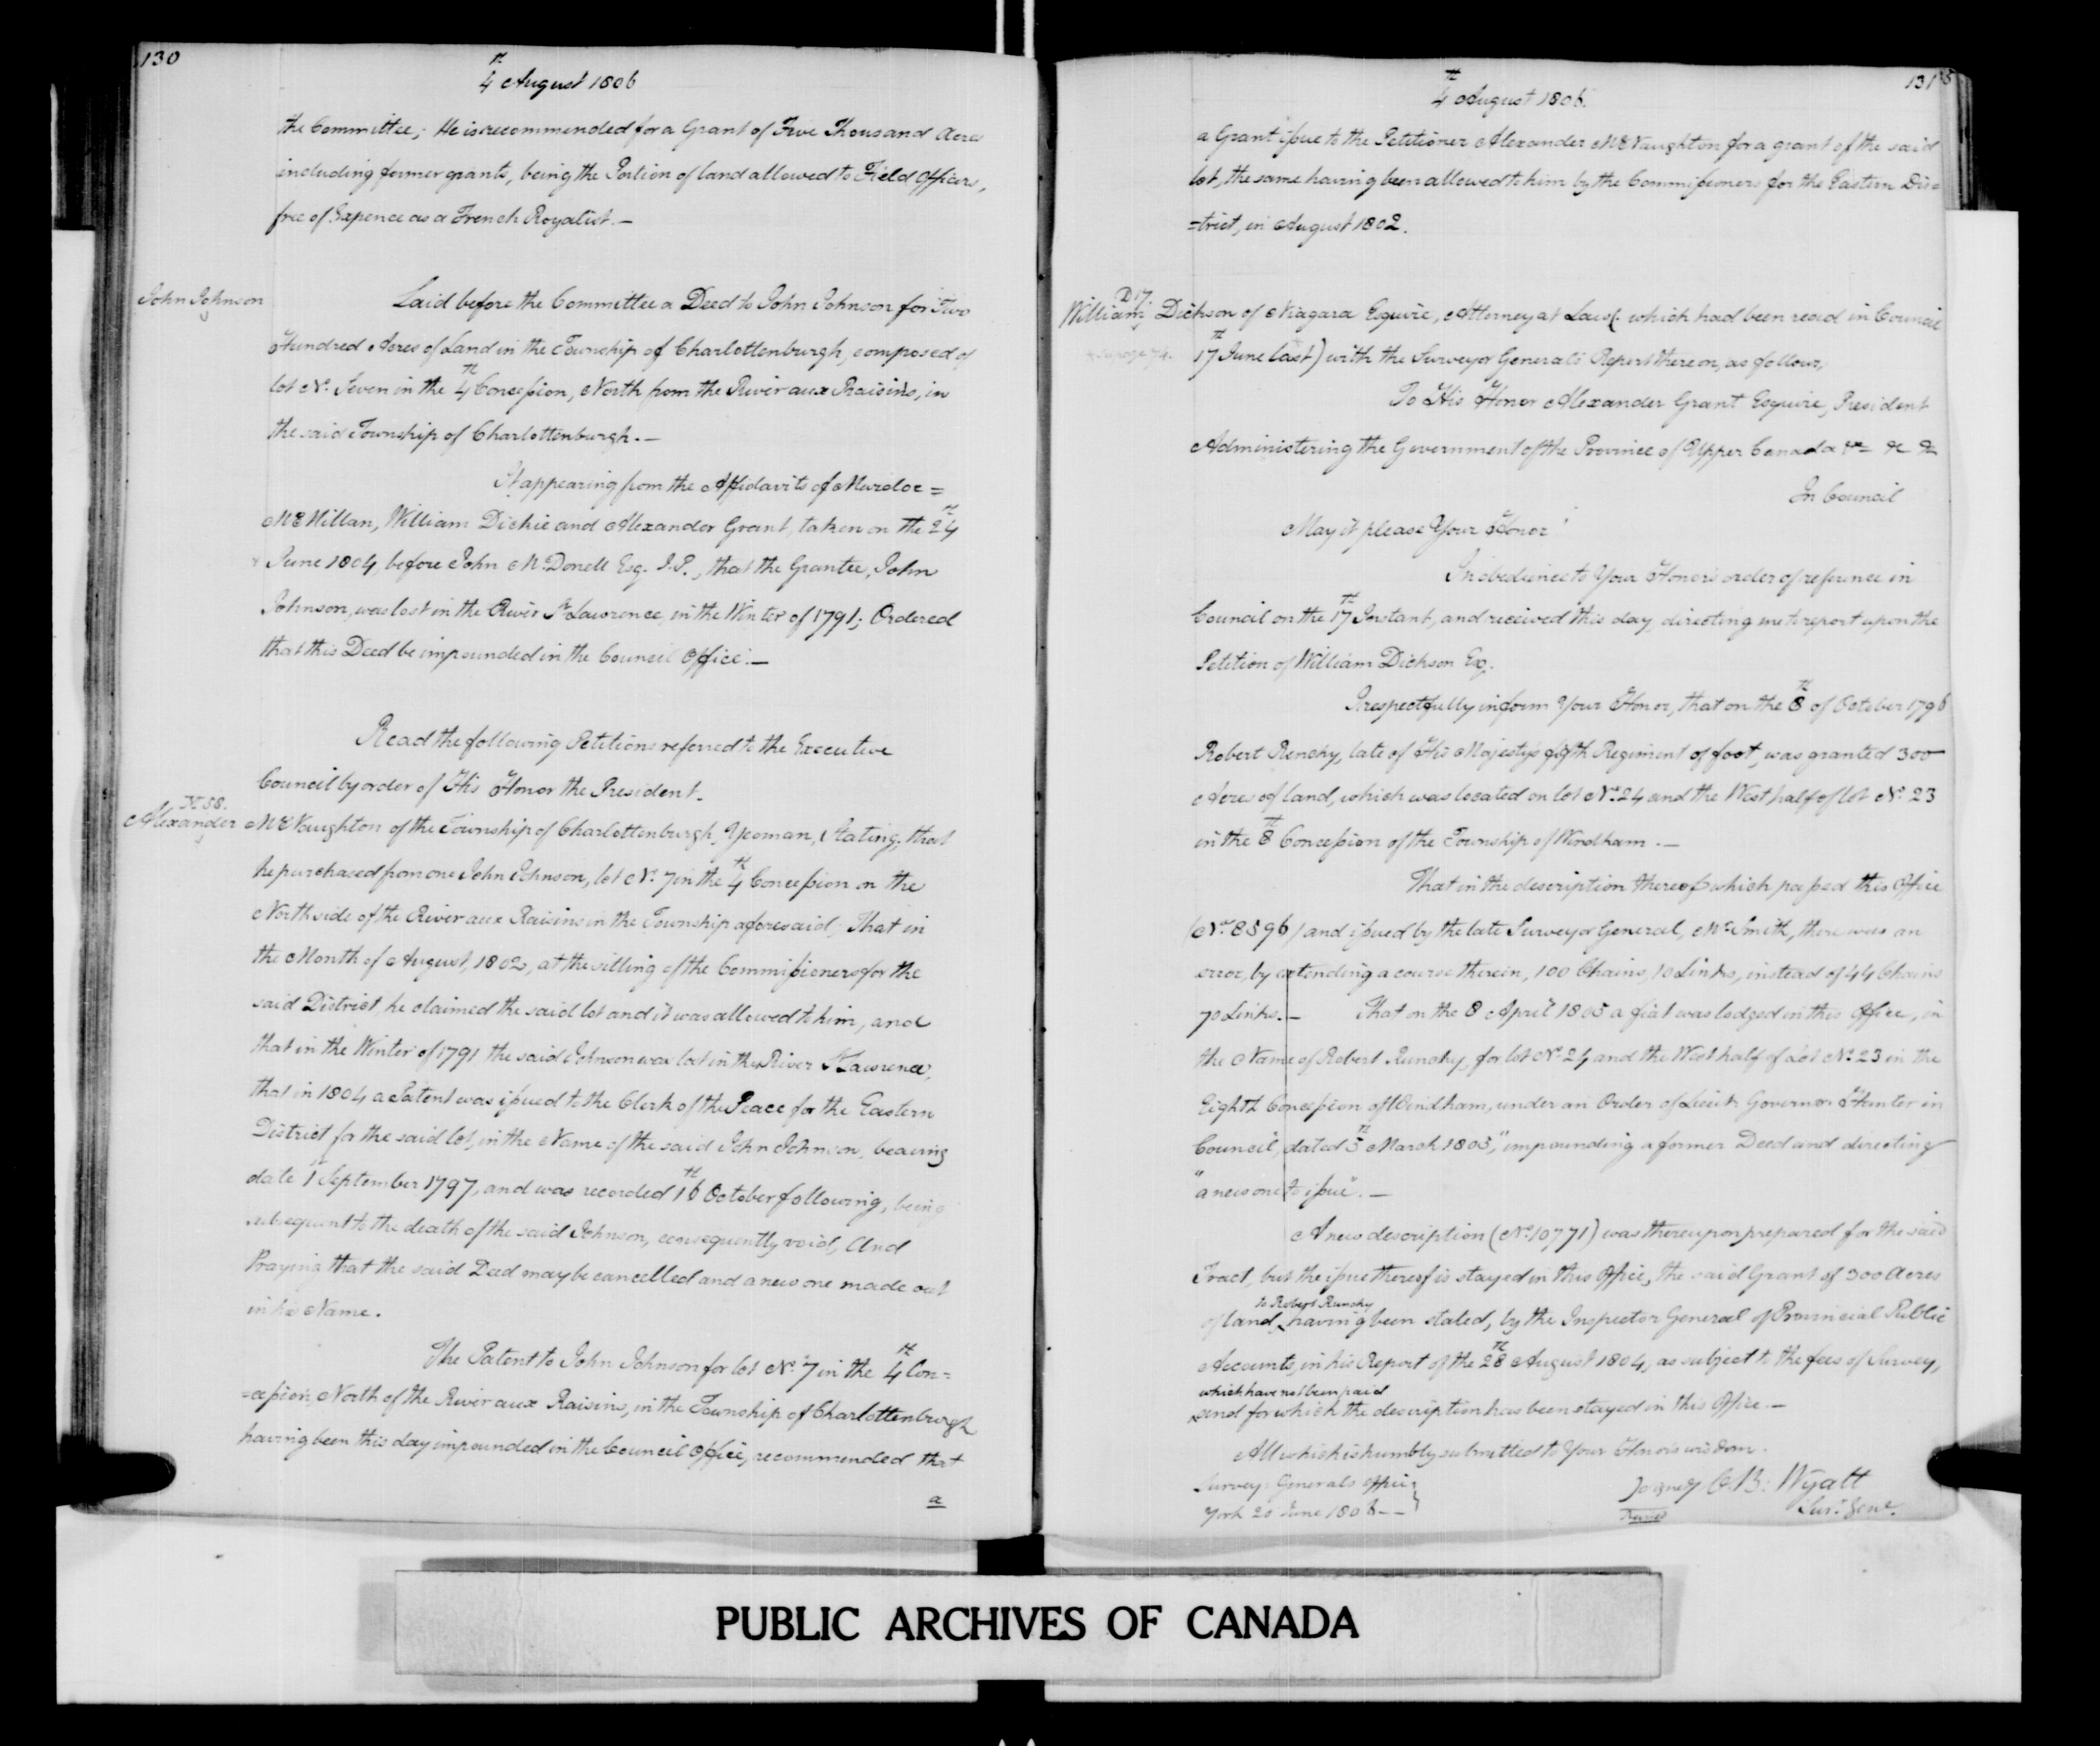 130
4th August 1806
the Committee; He is recommended for a Grant of Five Thousand Acres
including former grants, being the Portion of land allowed to Field Officers,
free of Expence as a French Royalist.—
John Johnson
Laid before the Committee a Deed to John Johnson for Two
Hundred Acres of Land in the Township of Charlottenburgh, composed of
lot No. Seven in the 4th Concession, North from the River aux Raisins, in
the said Township of Charlottenburgh.—
It appearing from the Affidavits of Murdoc=
McMillan, William Dickie and Alexander Grant, taken on the 24th
June 1804, before John McDonell Esq. J.P., that the Grantee, John
Johnson, was lost in the River St Lawrence, in the Winter of 1791; Ordered
that this Deed be impounded in the Council Office.—
Read the following Petitions referred to the Executive
Council by order of His Honor the President.
Alexander McNaughton of the Township of Charlottenburgh, Yeoman, Stating, that
he purchased from one John Johnson, lot No. 7 in the 4th Concession on the
North side of the River aux Raisins in the Township aforesaid; That in
the Month of August, 1802, at the sitting of the Commissioners for the
said District, he claimed the said lot and it was allowed to him, and
that in the Winter of 1791 the said Johnson was lost in the River St Lawrence,
that in 1804 a Patent was issued to the Clerk of the Peace for the Eastern
District for the said lot, in the Name of the said John Johnson, bearing
date 1 September 1797, and was recorded 16th October following, being
subsequent to the death of the said Johnson, consequently void, And
Praying that the said Deed may be cancelled and a new one made out
in his Name.
The Patent to John Johnson for lot No. 7 in the 4th Con=
=cession, North of the River aux Raisins, in the Township of Charlottenburgh
having been this day impounded in the Council Office, recommended that
a
131
4th August 1806.
a Grant issue to the Petitioner Alexander McNaughton for a grant of the said
lot, the same having been allowed to him by the Commissioners for the Eastern Dis=
=trict, in August 1802.
D 17.
William Dickson of Niagara Esquire, Attorney at Law (which had been read in Council
17th June last) with the Surveyor General's Report thereon, as follows,
To His Honor Alexander Grant Esquire, President
Administering the Government of the Province of Upper Canada &c &c &c
In Council
May it please Your Honor!
In obedience to Your Honor's order of reference in
Council on the 17th Instant, and received this day, directing me to report upon the
Petition of William Dickson Esq.
I respectfully inform Your Honor, that on the 8th of October 1796
Robert Renchy, late of His Majesty's fifth Regiment of foot, was granted 300
Acres of land, which was located on lot No. 24 and the West half of lot No. 23
in the 8th Concession of the Township of Windham.—
That in the description thereof which passed this Office
(No. 8596) and issued by the late Surveyor General, Mr. Smith, there was an
error, by extending a course therein, 100 Chains, 10 Links, instead of 44 Chains
70 Links.— That on the 8 April 1805 a fiat was lodged in this Office, in
the Name of Robert Runchy, for lot No. 24 and the West half of Lot No. 23 in the
Eighth Concession of Windham, under an Order of Lieut. Governor Hunter in
Council, dated 5th March 1805, "impounding a former Deed and directing
"a new one to issue".—
A new description (No. 10771) was thereupon prepared for the said
Tract, but the issue thereof is stayed in this Office, the said Grant of 300 Acres
to Robert Runchy
of land, having been stated, by the Inspector General of Provincial Public
Accounts, in his Report of the 28th August 1804, as subject to the fees of Survey,
which have not been paid
and for which the description has been stayed in this Office.—
All which is humbly submitted to Your Honor's wisdom.
Survey. Generals Office
York 20 June 1806—
Signed C. B. Wyatt
Surr. Genl.
PUBLIC ARCHIVES OF CANADA